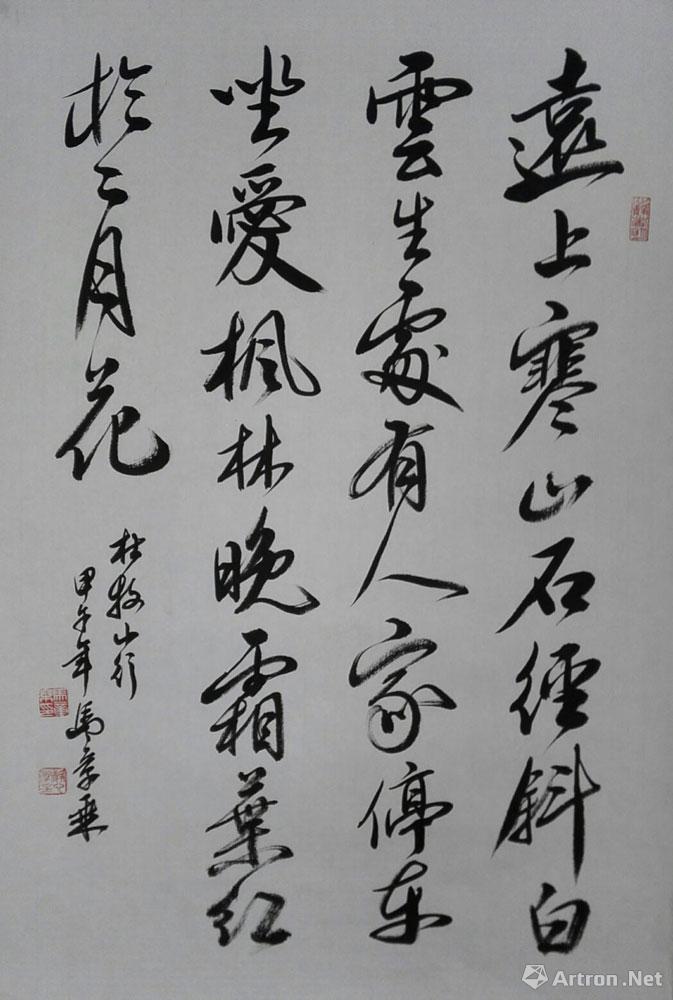 遠上寒山石徑斜白
雲生處有人家停車
坐愛楓林晚霜葉紅
於二月花
杜牧山行
甲午年馬章乘
Artron.Net